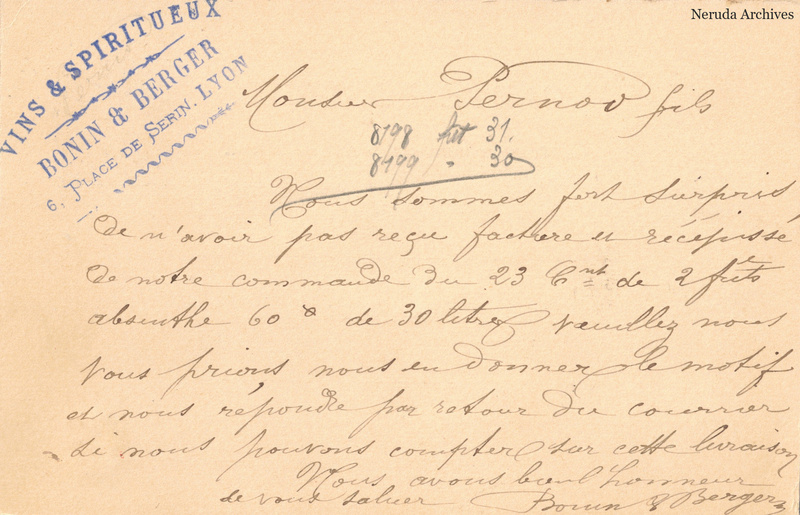 Neruda Archives
VINS & SPIRITUEUX
BONIN & BERGER
6, PLACE DE SERIN. LYON
Monsieur Pernod fils
8198 fut 31.
8199 " 30
Nous sommes fort surpris
de n'avoir pas reçu facture et récépissé
de notre commande du 23 Cnt de 2 futs
absinthe 60 ° de 30 litres veuillez nous
vous prions nous en donner le motif
et nous répondre par retour du courrier
si nous pouvons compter sur cette livraison
Nous avons l'honneur
de vous saluer Bonin & Berger